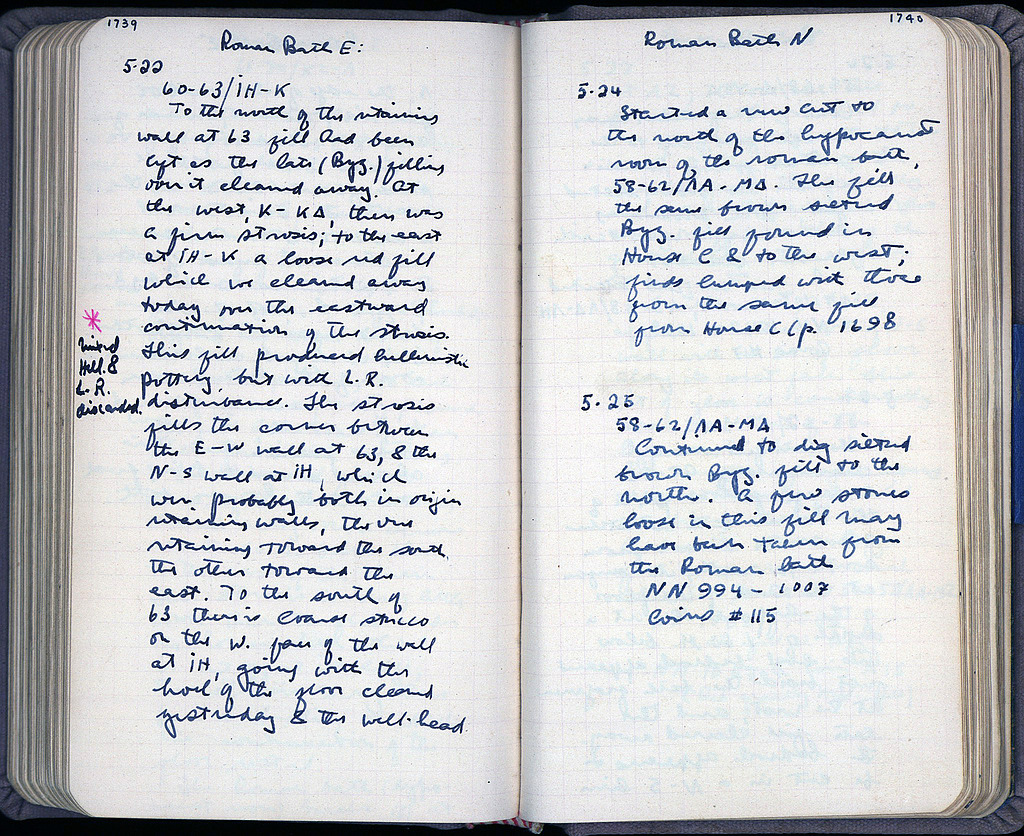 1739
Roman Bath E:
5-22
60-63/ΙΗ-Κ
To the north of the retaining
wall at 63 fill had been
left as the late (Byz.) filling
over it cleared away. At
the west, Κ-ΚΔ, there was
a firm strosis; to the east
at ΙΗ-Κ a loose red fill
which we cleared away
today over the eastward
continuation of the strosis.
This fill produced hellenistic
pottery, but with L.R.
disturbance. The strosis
fills the corner between
the E-W wall at 63, & the
N-S wall at ΙΗ, which
were probably both in origin
retaining walls, the one
retaining toward the south,
the other toward the
east. To the south of
63 there is coarse stucco
on the W. face of the wall
at ΙΗ, going with the
level of the floor cleared
yesterday & the well-head
*
Mixed
Hell. &
L.R.
discarded.
1740
Roman Bath N
5-24
Started a new cut to
the north of the hypocaust
room of the roman bath,
58-62/ΛΑ-ΜΔ. The fill
the same brown sieved
Byz. fill found in
House C & to the west;
finds lumped with those
from the same fill
from House C (p. 1698
5-25
58-62/ΛΑ-ΜΔ
Continued to dig sieved
brown Byz. fill to the
north. A few stones
loose in this fill may
have been taken from
the Roman bath
NN 994 - 1007
Coins #115